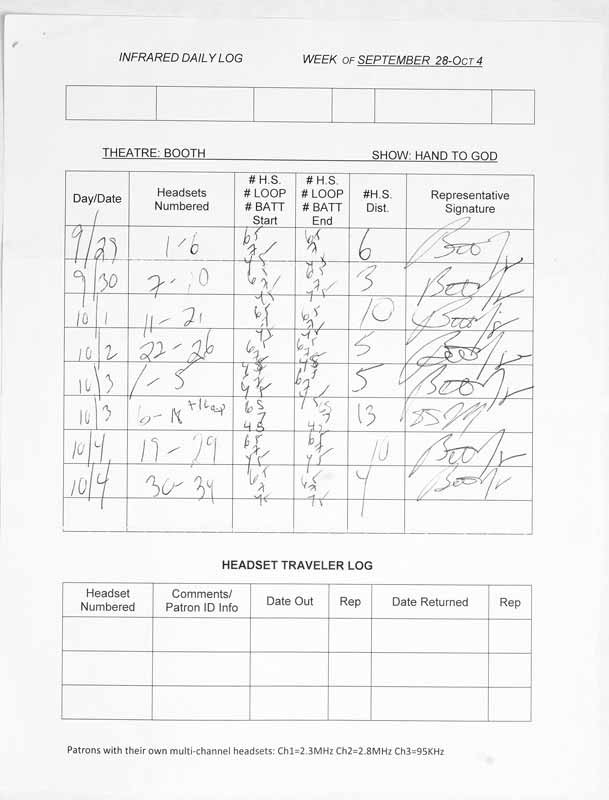 INFRARED DAILY LOG WEEK OF SEPTEMBER 28-OCT 4
THEATRE: BOOTH SHOW: HAND TO GOD
Day/Date Headsets Numbered # H.S. # LOOP # BATT Start # H.S. # LOOP # BATT End #H.S. Dist. Representative Signature
9/29 1-6 65 7 45 65 7 45 6
9/30 7-10 65 7 45 65 7 45 3
10/1 11-21 65 7 45 65 7 45 10
10/2 22-26 65 7 45 65 7 45 5
10/3 1-5 65 7 45 65 7 45 5
10/3 6-18 +1Loop 65 7 45 65 7 45 13
10/4 19-29 65 7 45 65 7 45 10
10/4 30-34 65 7 45 65 7 45 4
HEADSET TRAVELER LOG
Headset Numbered Comments/ Patron ID Info Date Out Rep Date Returned Rep
Patrons with their own multi-channel headsets: Ch1=2.3MHz Ch2=2.8MHz Ch3=95KHz